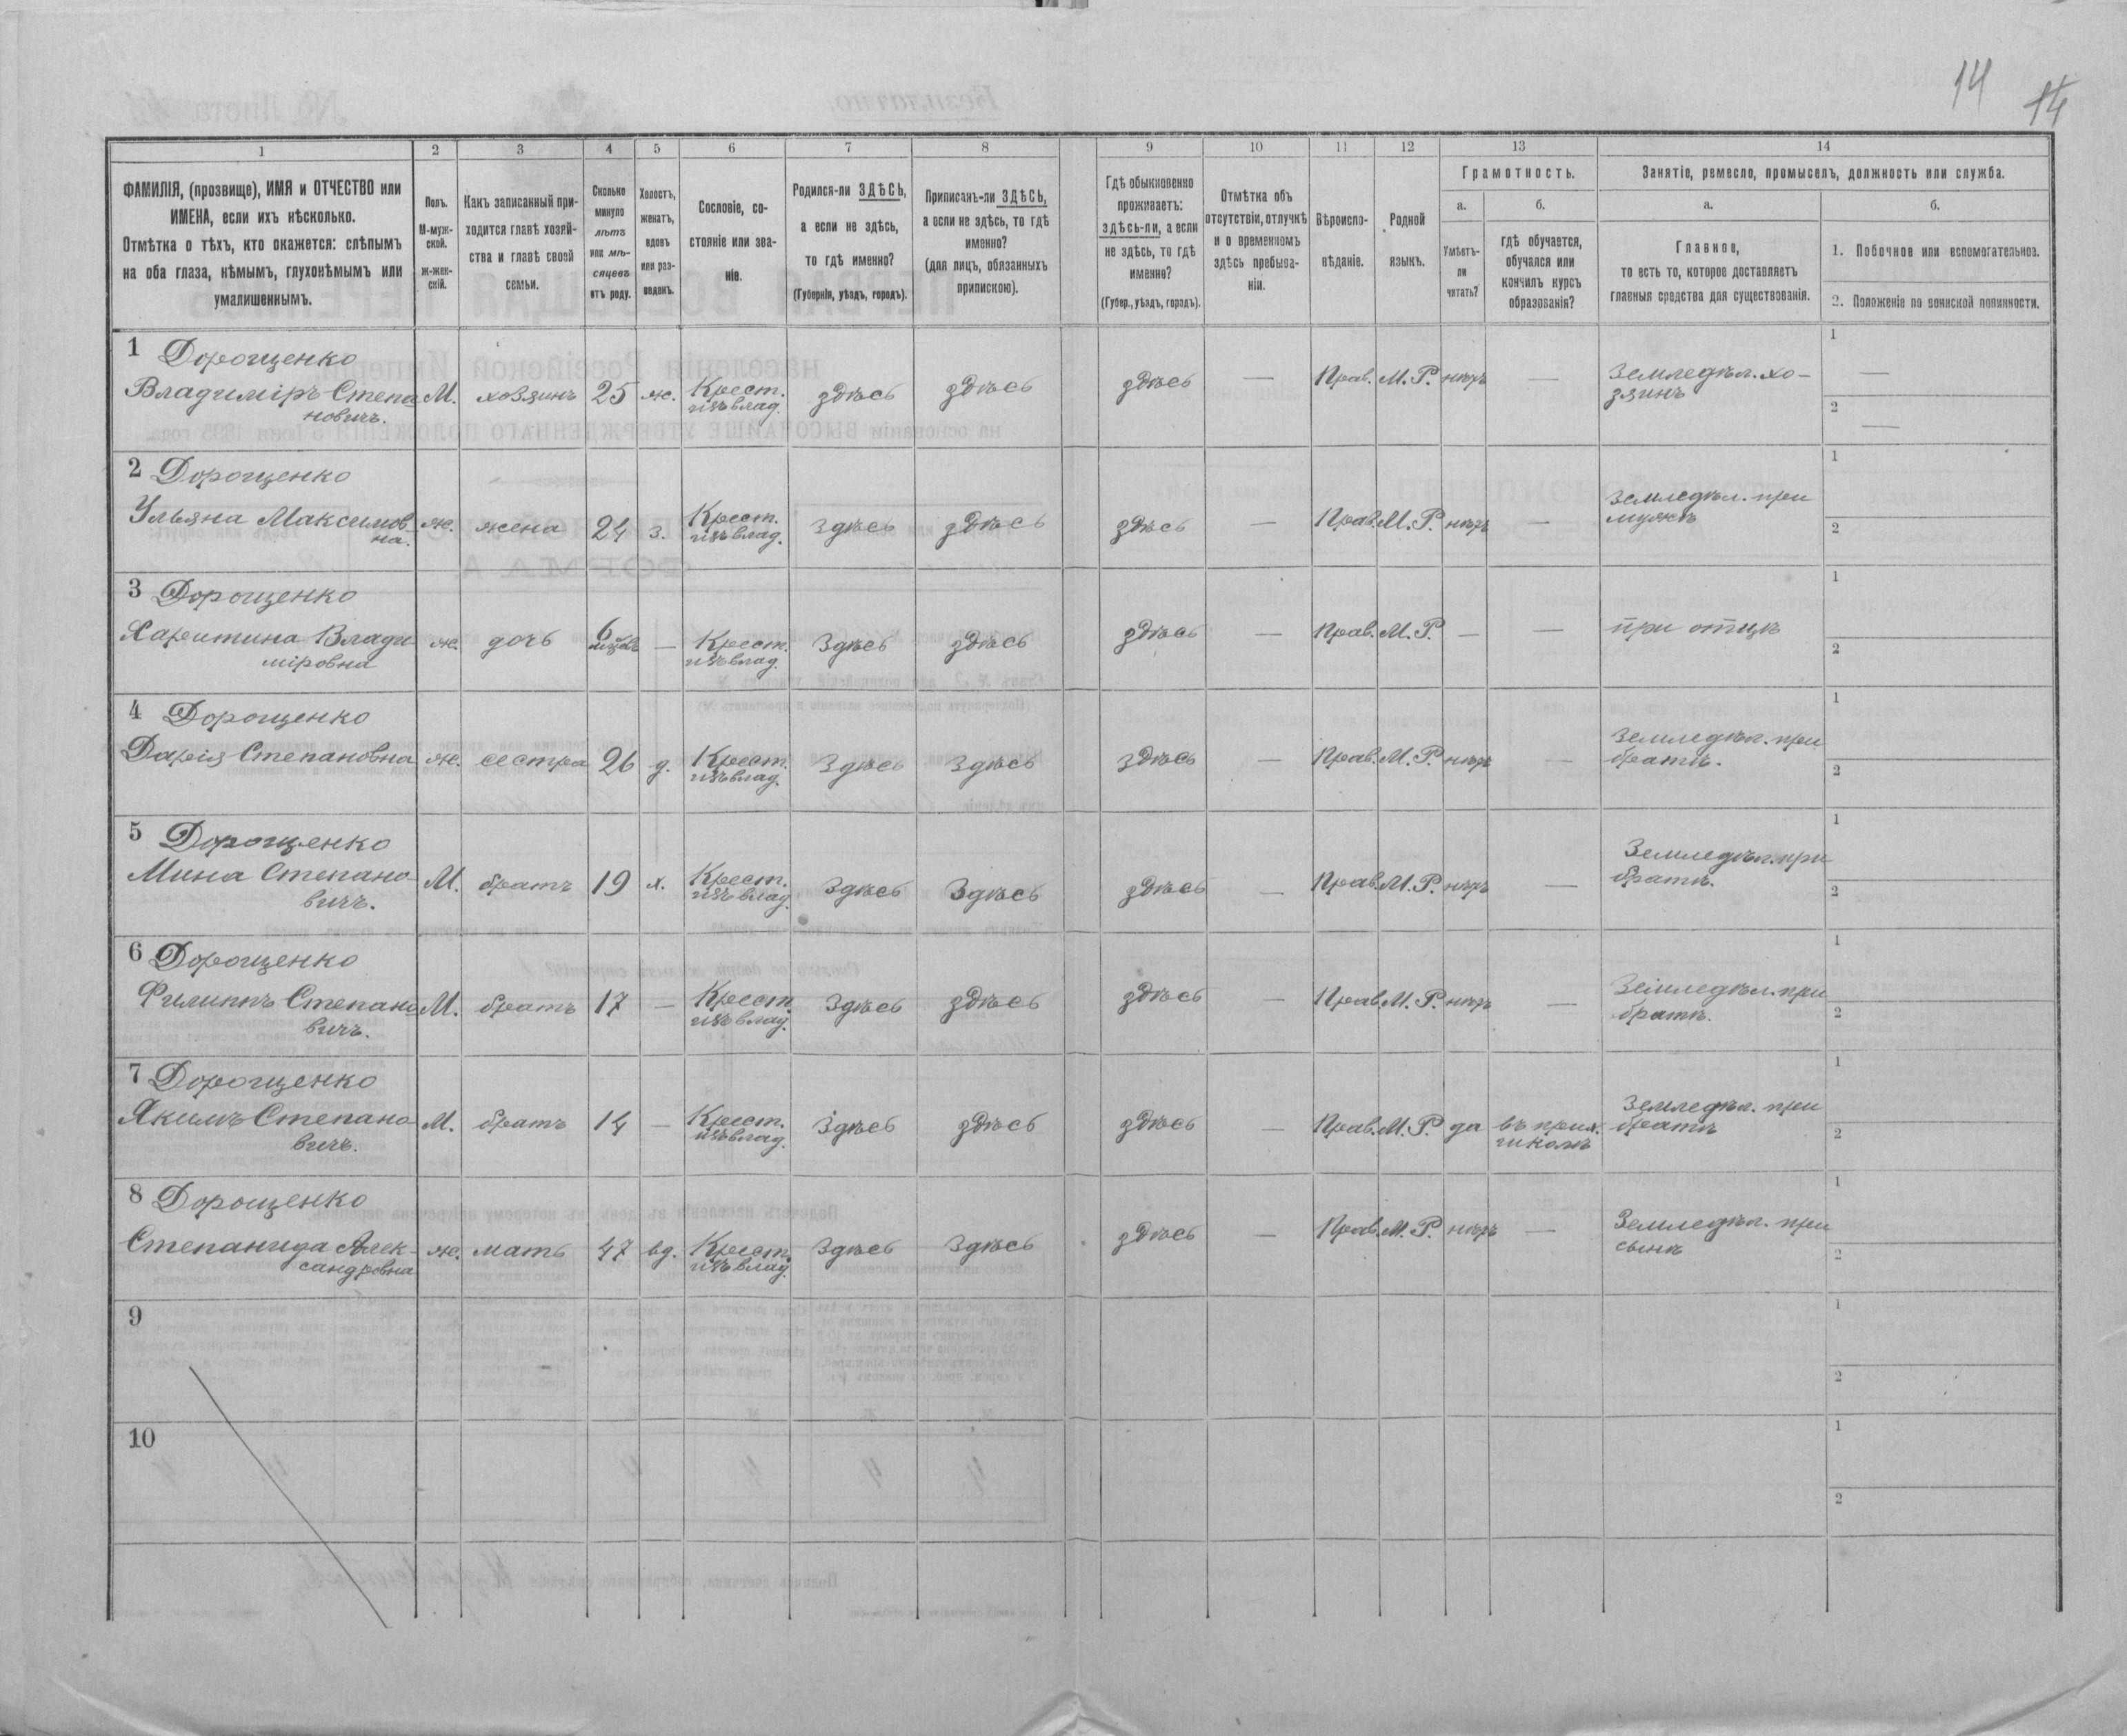 14 14
1 2 3 4 5 6 7 8 9 10 11 12 13 14
ФАМИЛІЯ, (прозвище), ИМЯ и ОТЧЕСТВО или
ИМЕНА, если ихъ нѣсколько.
Отмѣтка о тѣхъ, кто окажется: слѣпымъ
на оба глаза, нѣмымъ, глухонѣмымъ или
умалишеннымъ.
Полъ.
М-муж-
ской.
ж-жен-
скій.
Какъ записанный при-
ходится главѣ хозяй-
ства и главѣ своей
семьи.
Сколько
минуло
лѣтъ
или мѣ-
сяцевъ
отъ роду.
Холостъ,
женатъ,
вдовъ
или раз-
веденъ.
Сословіе, со-
стояніе или зва-
ніе.
Родился-ли ЗДѢСЬ,
а если не здѣсь,
то гдѣ именно?
(Губернія, уѣздъ, городъ).
Приписанъ-ли ЗДѢСЬ,
а если не здѣсь, то гдѣ
именно?
(для лицъ, обязанныхъ
припискою).
Гдѣ обыкновенно
проживаетъ:
здѣсь-ли, а если
не здѣсь, то гдѣ
именно?
(Губер., уѣздъ, городъ).
Отмѣтка объ
отсутствіи, отлучкѣ
и о временномъ
здѣсь пребыва-
ніи.
Вѣроиспо-
вѣданіе.
Родной
языкъ.
Грамотность.
а.
Умѣетъ-
ли
читать?
б.
гдѣ обучается,
обучался или
кончилъ курсъ
образованія?
Занятіе, ремесло, промыселъ, должность или служба.
а.
Главное,
то есть то, которое доставляетъ
главныя средства для существованія.
б.
1. Побочное или вспомогательное.
2. Положеніе по воинской повинности.
1 Дорощенко
Владиміръ Степа М. хозяинъ 25 ж. Крест. здѣсь здѣсь здѣсь — Прав. М. Р. нѣтъ — Земледѣл. хо- 1 —
новичъ. изъ влад. зяинъ 2 —
2 Дорощенко 1
Ульяна Максимов ж. жена 24 з. Крест. здѣсь здѣсь здѣсь — Прав. М. Р. нѣтъ — Земледѣл. при
на. изъ влад. мужѣ 2
3 Дорощенко 1
Харитина Влади- ж. дочь 6 мѣсяц. — Крест. здѣсь здѣсь здѣсь — Прав. М. Р. — — при отцѣ
міровна изъ влад. 2
4 Дорощенко 1
Дарія Степановна ж. сестра 26 д. Крест. здѣсь здѣсь здѣсь — Прав. М. Р. нѣтъ — Земледѣл. при
изъ влад. братѣ. 2
5 Дорощенко 1
Мина Степано- М. братъ 19 х. Крест. здѣсь здѣсь здѣсь — Прав. М. Р. нѣтъ — Земледѣл. при
вичъ. изъ влад. братѣ. 2
6 Дорощенко 1
Филиппъ Степано М. братъ 17 — Крест. здѣсь здѣсь здѣсь — Прав. М. Р. нѣтъ — Земледѣл. при
вичъ. изъ влад. братѣ. 2
7 Дорощенко 1
Якимъ Степано М. братъ 14 — Крест. здѣсь здѣсь здѣсь — Прав. М. Р. да въ прих. Земледѣл. при
вичъ. изъ влад. школѣ братѣ 2
8 Дорощенко 1
Степанида Алек- ж. мать 47 вд. Крест. здѣсь здѣсь здѣсь — Прав. М. Р. нѣтъ — Земледѣл. при
сандровна изъ влад. сынѣ 2
9 1
2
10 1
2